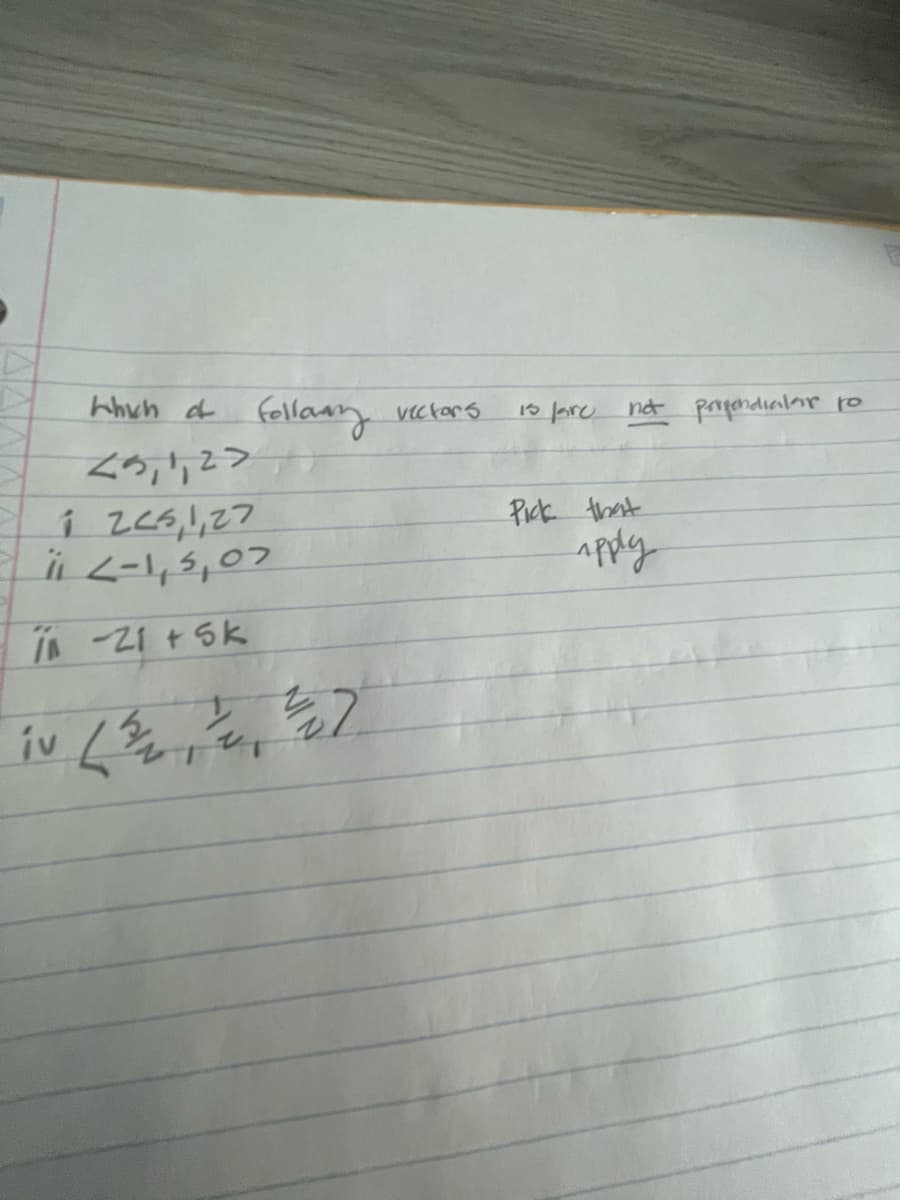 Which of following vectors is/are not perpendicular to
<5,1,2>
i 2<5,1,2>
ii <-1,5,0>
Pick that apply
iii -2i + 5k
iv <5/2, 1/2, 2/2>